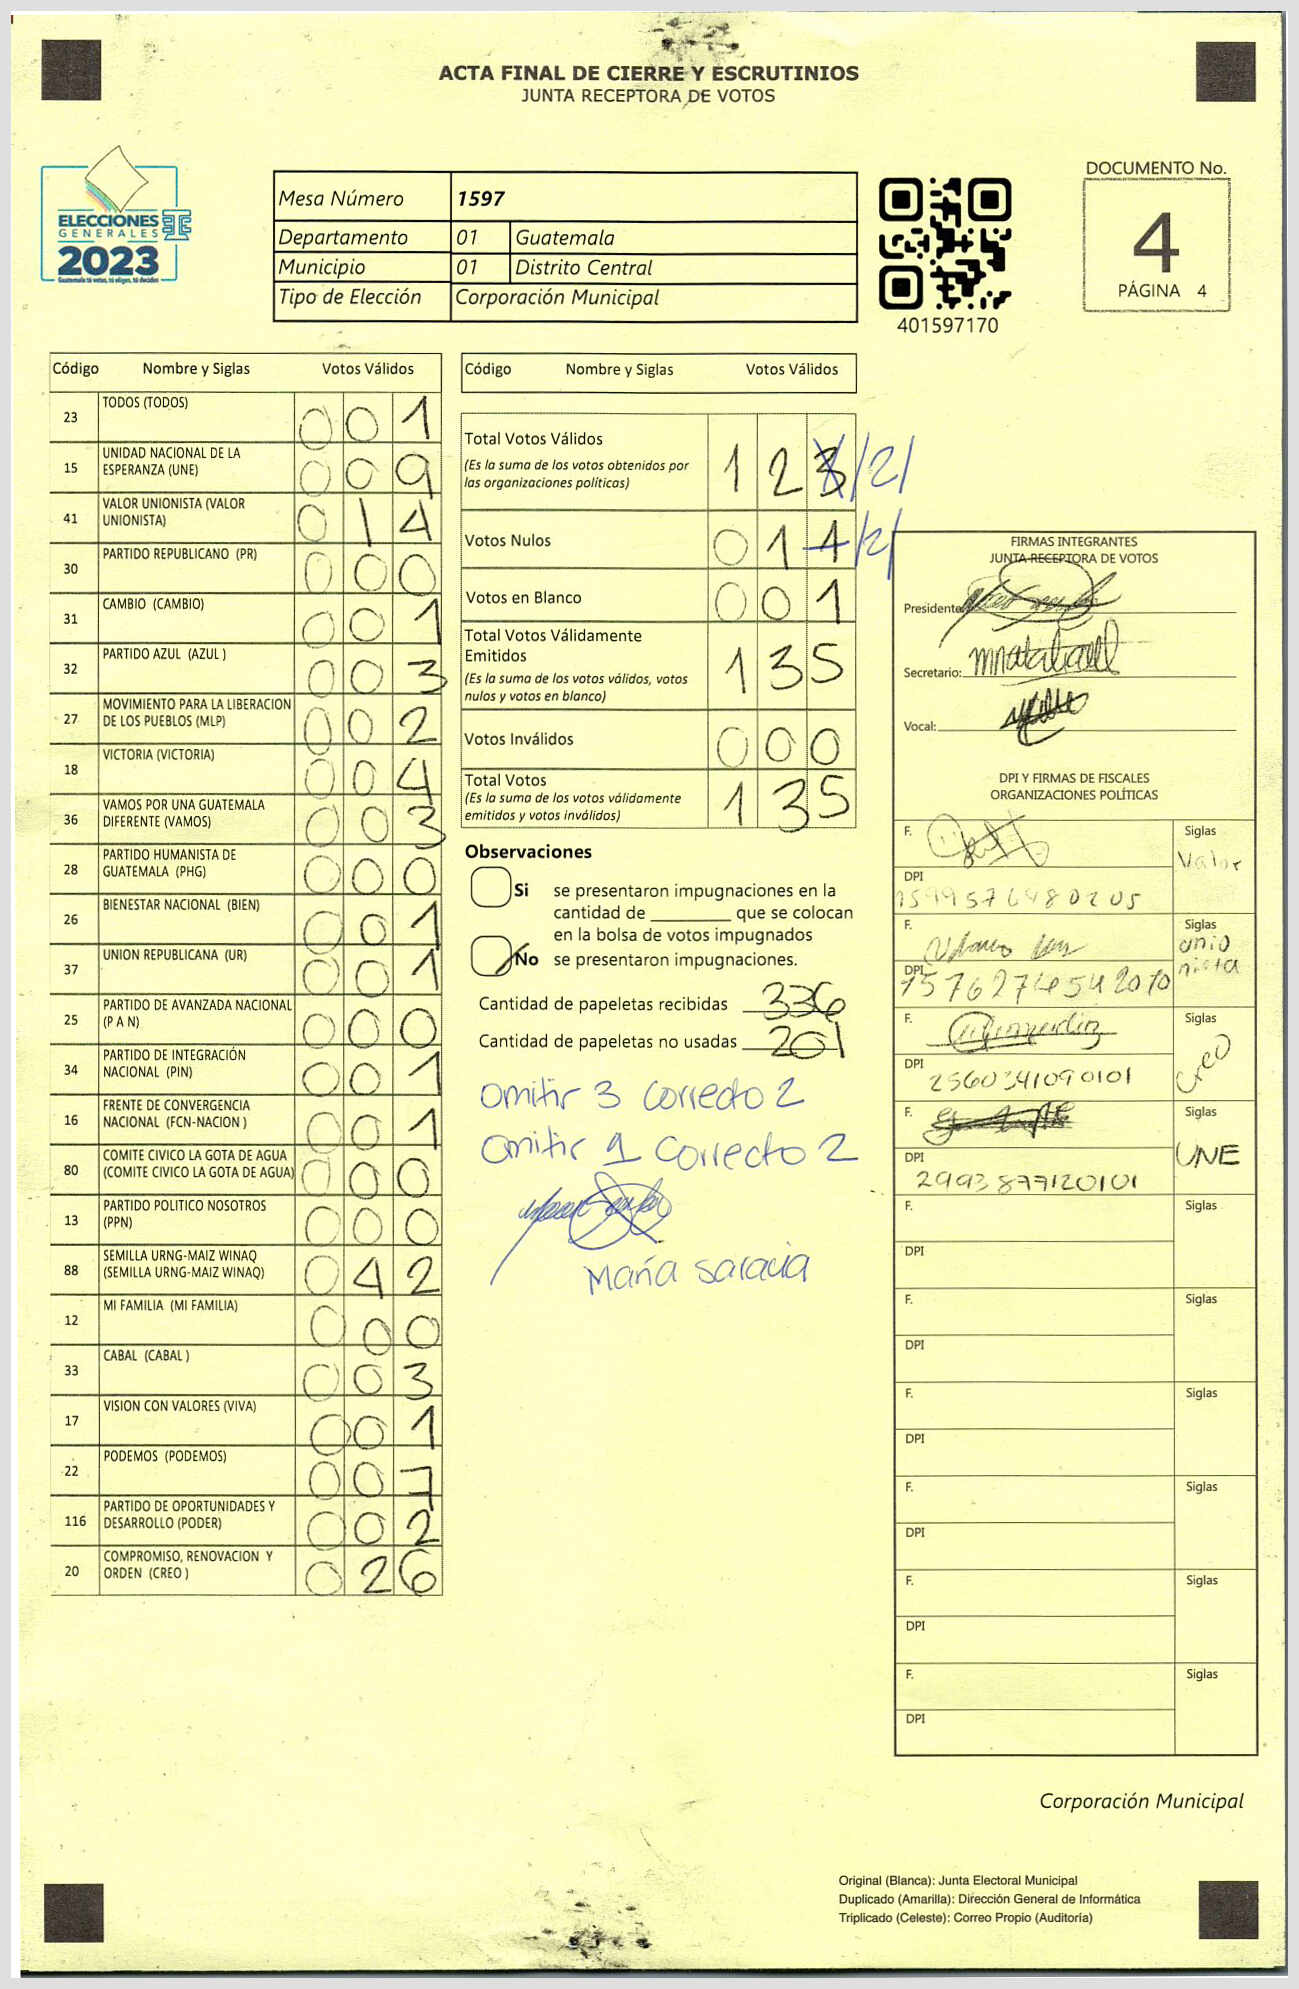 ACTA FINAL DE CIERRE Y ESCRUTINIOS
JUNTA RECEPTORA DE VOTOS
ELECCIONES
GENERALES
2023
Guatemala tú votas, tú eliges, tú decides
Mesa Número 1597
Departamento 01 Guatemala
Municipio 01 Distrito Central
Tipo de Elección Corporación Municipal
401597170
DOCUMENTO No.
4
PÁGINA 4
Código Nombre y Siglas Votos Válidos
23 TODOS (TODOS) 0 0 1
15 UNIDAD NACIONAL DE LA ESPERANZA (UNE) 0 0 9
41 VALOR UNIONISTA (VALOR UNIONISTA) 0 1 4
30 PARTIDO REPUBLICANO (PR) 0 0 0
31 CAMBIO (CAMBIO) 0 0 1
32 PARTIDO AZUL (AZUL ) 0 0 3
27 MOVIMIENTO PARA LA LIBERACION DE LOS PUEBLOS (MLP) 0 0 2
18 VICTORIA (VICTORIA) 0 0 4
36 VAMOS POR UNA GUATEMALA DIFERENTE (VAMOS) 0 0 3
28 PARTIDO HUMANISTA DE GUATEMALA (PHG) 0 0 0
26 BIENESTAR NACIONAL (BIEN) 0 0 1
37 UNION REPUBLICANA (UR) 0 0 1
25 PARTIDO DE AVANZADA NACIONAL (P A N) 0 0 0
34 PARTIDO DE INTEGRACIÓN NACIONAL (PIN) 0 0 1
16 FRENTE DE CONVERGENCIA NACIONAL (FCN-NACION ) 0 0 1
80 COMITE CIVICO LA GOTA DE AGUA (COMITE CIVICO LA GOTA DE AGUA) 0 0 0
13 PARTIDO POLITICO NOSOTROS (PPN) 0 0 0
88 SEMILLA URNG-MAIZ WINAQ (SEMILLA URNG-MAIZ WINAQ) 0 4 2
12 MI FAMILIA (MI FAMILIA) 0 0 0
33 CABAL (CABAL ) 0 0 3
17 VISION CON VALORES (VIVA) 0 0 1
22 PODEMOS (PODEMOS) 0 0 7
116 PARTIDO DE OPORTUNIDADES Y DESARROLLO (PODER) 0 0 2
20 COMPROMISO, RENOVACION Y ORDEN (CREO ) 0 2 6
Código Nombre y Siglas Votos Válidos
Total Votos Válidos 1 2 3 /2/
(Es la suma de los votos obtenidos por
las organizaciones políticas)
Votos Nulos 0 1 1 /2/
Votos en Blanco 0 0 1
Total Votos Válidamente
Emitidos 1 3 5
(Es la suma de los votos válidos, votos
nulos y votos en blanco)
Votos Inválidos 0 0 0
Total Votos 1 3 5
(Es la suma de los votos válidamente
emitidos y votos inválidos)
Observaciones
Si se presentaron impugnaciones en la
cantidad de ________ que se colocan
en la bolsa de votos impugnados
No se presentaron impugnaciones.
Cantidad de papeletas recibidas 336
Cantidad de papeletas no usadas 201
Omitir 3 correcto 2
Omitir 1 correcto 2
María Saravia
FIRMAS INTEGRANTES
JUNTA RECEPTORA DE VOTOS
Presidente:
Secretario:
Vocal:
DPI Y FIRMAS DE FISCALES
ORGANIZACIONES POLÍTICAS
F. Siglas
Valor
DPI
F. Siglas
unio
nista
DPI
1576274542010
F. Siglas
Creo
DPI
2560341090101
F. Siglas
UNE
DPI
2993877120101
F. Siglas
DPI
F. Siglas
DPI
F. Siglas
DPI
F. Siglas
DPI
F. Siglas
DPI
F. Siglas
DPI
Corporación Municipal
Original (Blanca): Junta Electoral Municipal
Duplicado (Amarilla): Dirección General de Informática
Triplicado (Celeste): Correo Propio (Auditoría)